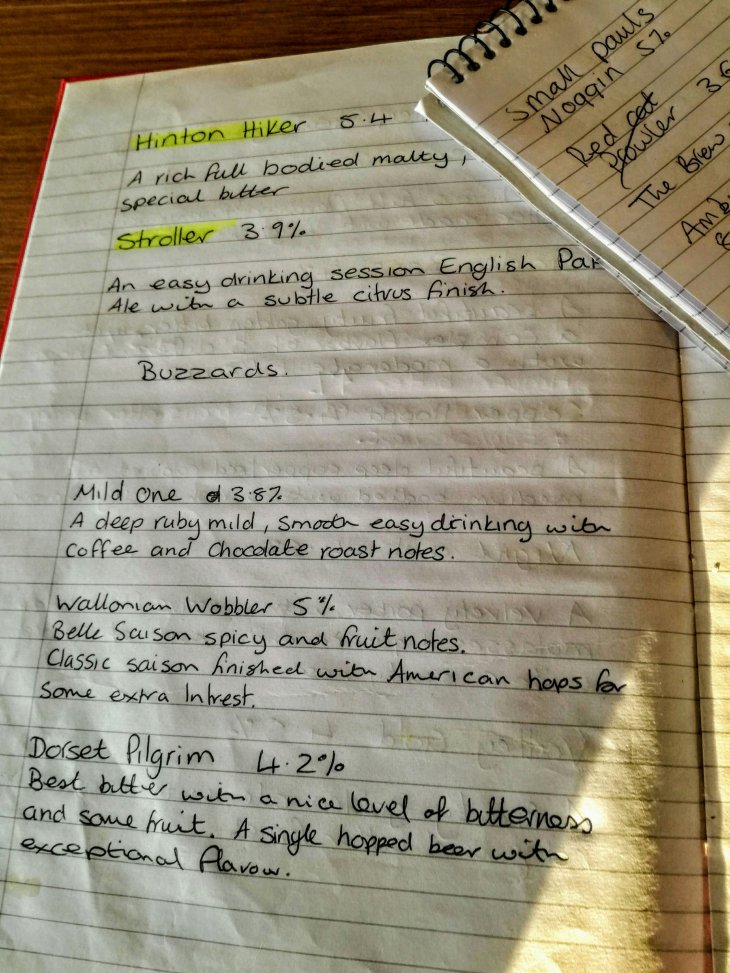 Hinton Hiker 5.4
A rich full bodied malty,
special bitter
Stroller 3.9%
An easy drinking session English Pa
Ale with a subtle citrus finish.
Buzzards.
Mild One 3.8%
A deep ruby mild, smooth easy drinking with
coffee and chocolate roast notes.
Wallonian Wobbler 5%
Belle Saison spicy and fruit notes.
Classic saison finished with American hops for
some extra Intrest.
Dorset Pilgrim 4.2%
Best bitter with a nice level of bitterness
and some fruit. A single hopped beer with
exceptional flavour.
Small pauls
Noggin 5%
Red cat
Prowler 3.6
The Brew